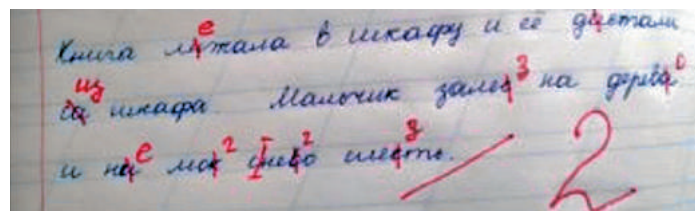 Книга лижала в шкафу и её дастали
са шкафа. Мальчик залес на дерева
и ни мок снево слесть. 2